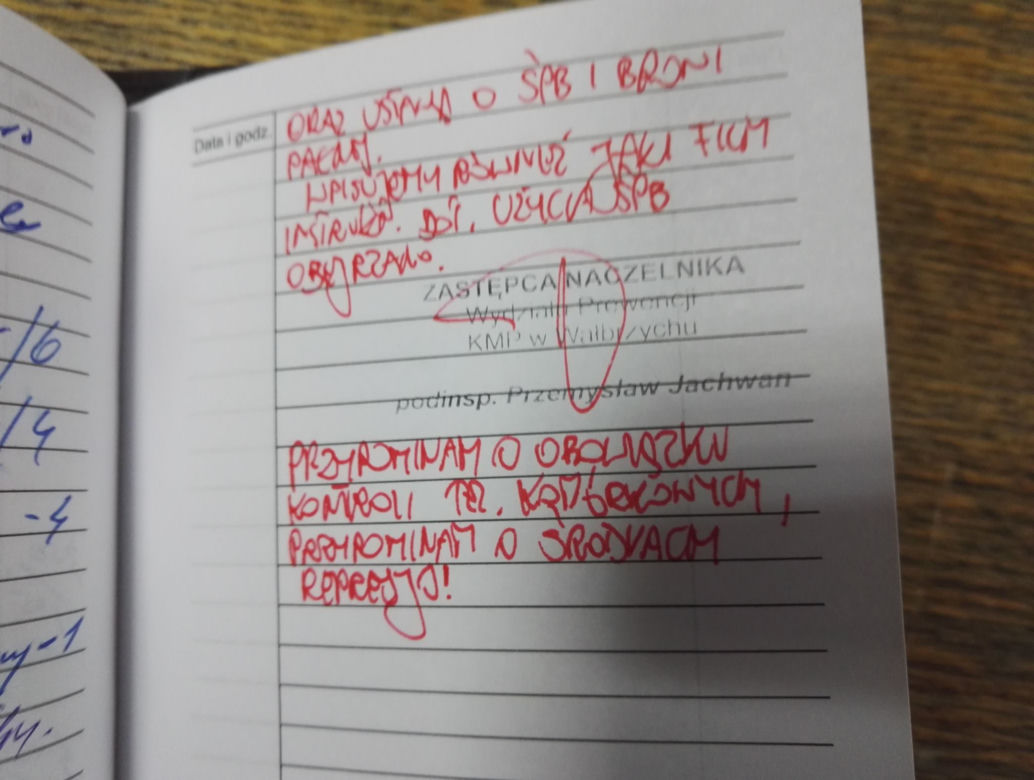 Data i godz.
ORAZ USTAWĄ O ŚPB I BRONI
PALNEJ.
WPISUJEMY RÓWNIEŻ JAKI FILM
INSTRUKT. DOT. UŻYCIA ŚPB
OBEJRZANO.
ZASTĘPCA NACZELNIKA
Wydziału Prewencji
KMP w Wałbrzychu
podinsp. Przemysław Jachwan
PRZYPOMINAM O OBOWIĄZKU
KONTROLI TEL. KOMÓRKOWYCH,
PRZYPOMINAM O ŚRODKACH
REPRESJI!
/6
/4
-4
-1